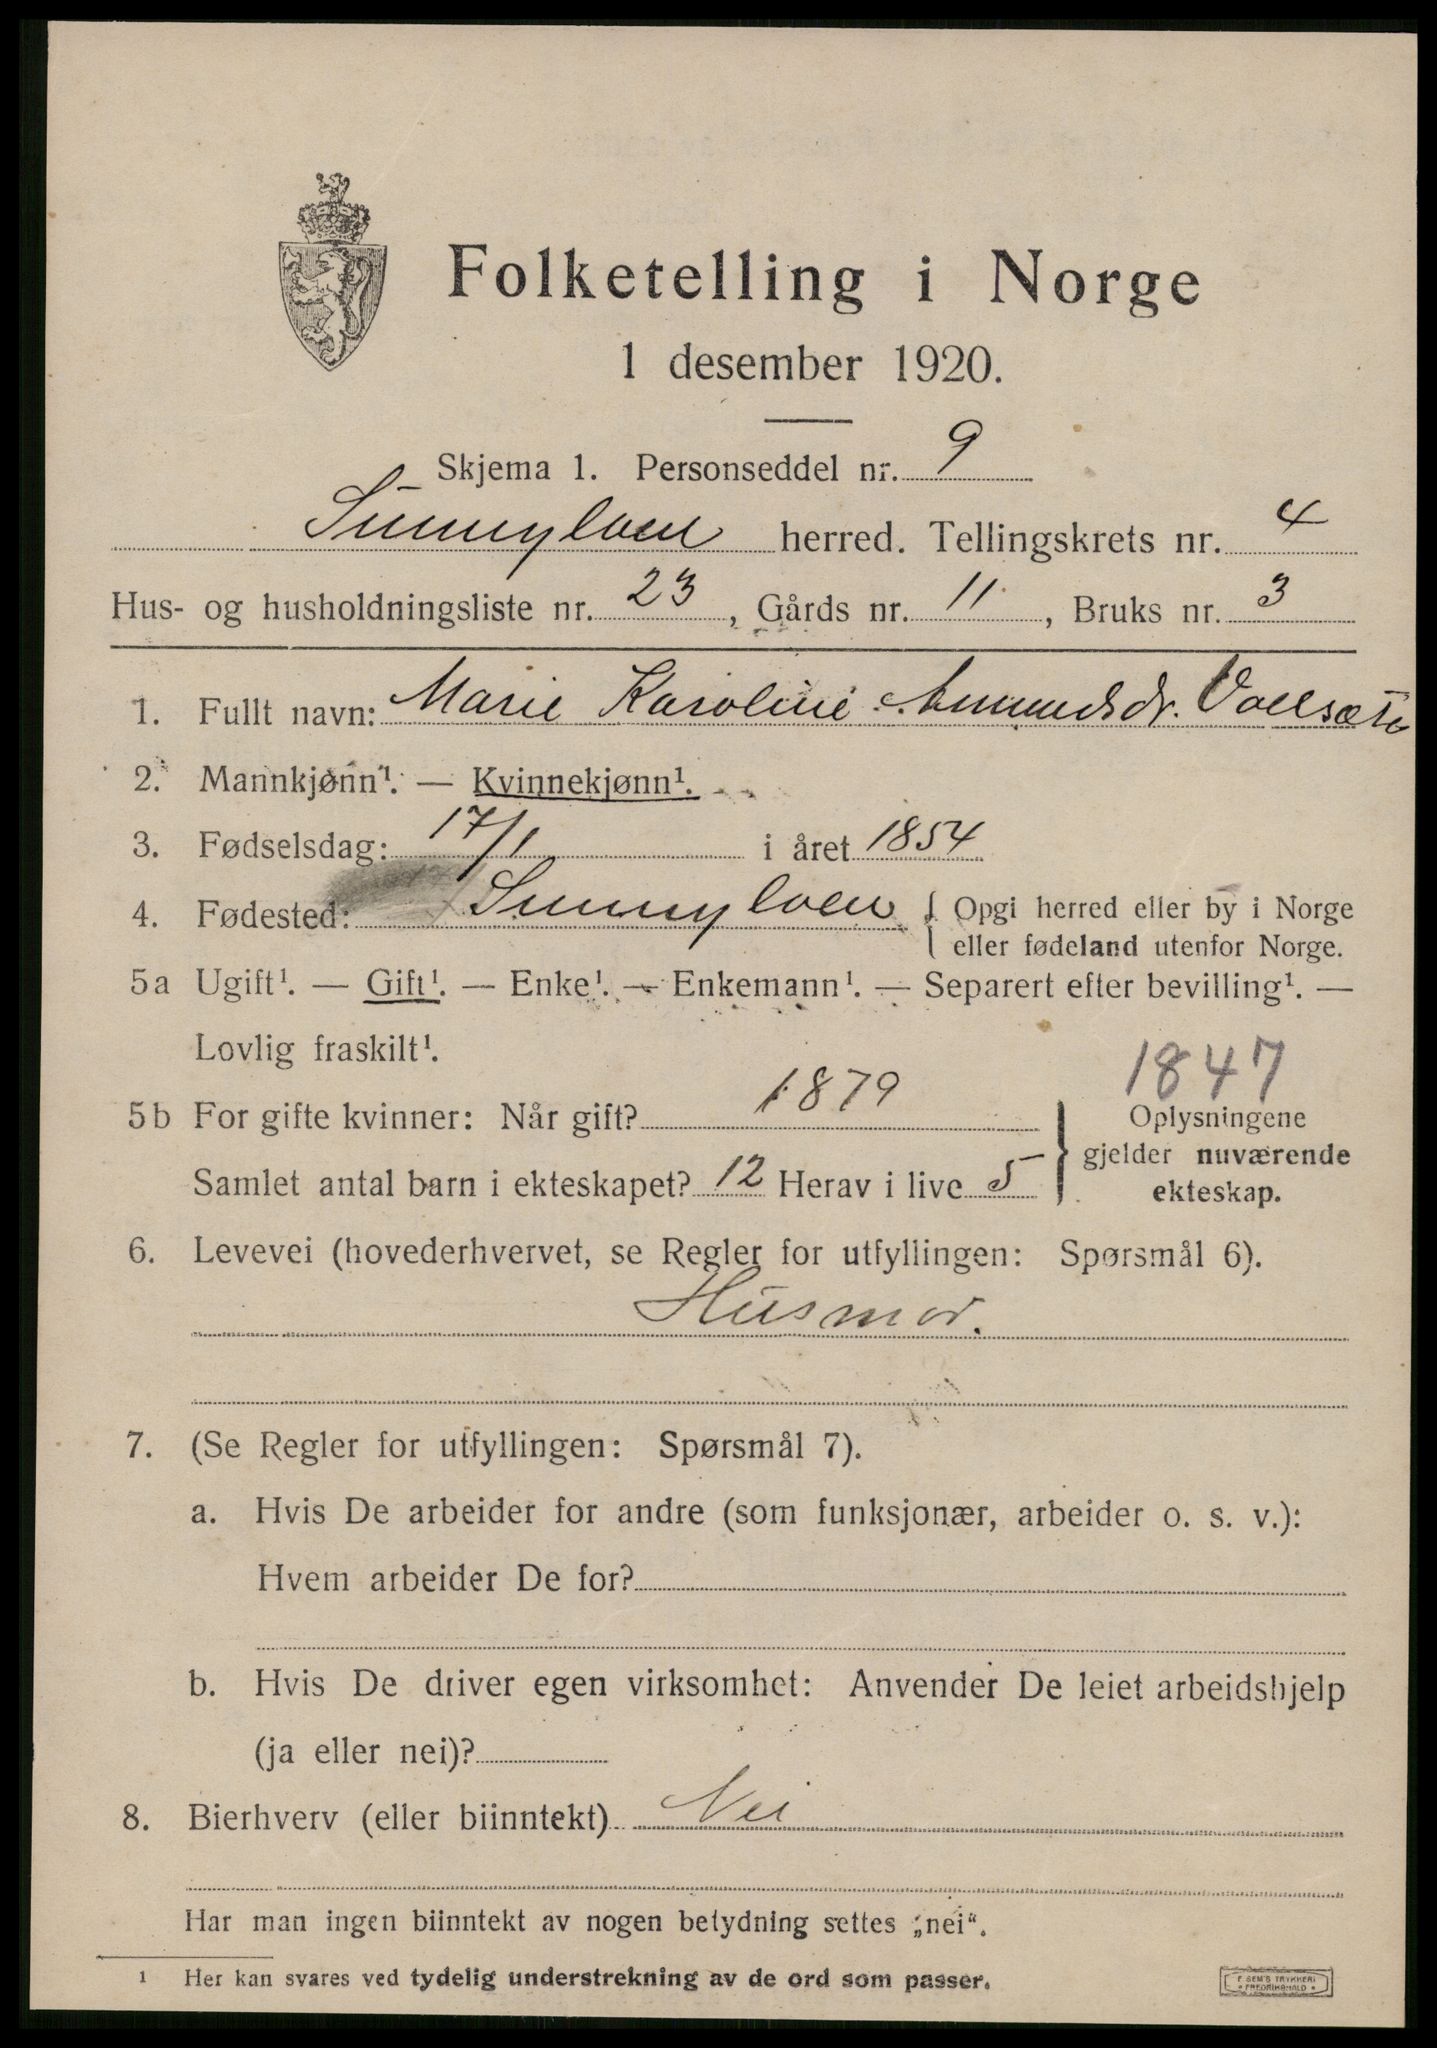 Folketelling i Norge
1 desember 1920.
Skjema 1. Personseddel nr. 9
Sunnylven herred. Tellingskrets nr. 4
Hus- og husholdningsliste nr. 23, Gårds nr. 11, Bruks nr. 3
1. Fullt navn: Marie Karoline Amundsdr. Vollsæter
2. Mannkjønn¹. — Kvinnekjønn¹.
3. Fødselsdag: 17/1 i året 1854
4. Fødested: Sunnylven { Opgi herred eller by i Norge
eller fødeland utenfor Norge.
5a Ugift¹. — Gift¹. — Enke¹. — Enkemann¹. — Separert efter bevilling¹. —
Lovlig fraskilt¹.
1847
5b For gifte kvinner: Når gift? 1879
Samlet antal barn i ekteskapet? 12 Herav i live 5
} Oplysningene
gjelder nuværende
ekteskap.
6. Levevei (hovederhvervet, se Regler for utfyllingen: Spørsmål 6).
Husmor.
7. (Se Regler for utfyllingen: Spørsmål 7).
a. Hvis De arbeider for andre (som funksjonær, arbeider o. s. v.):
Hvem arbeider De for?
b. Hvis De driver egen virksomhet: Anvender De leiet arbeidshjelp
(ja eller nei)?
8. Bierhverv (eller biinntekt) Nei
Har man ingen biinntekt av nogen betydning settes „nei“.
¹ Her kan svares ved tydelig understrekning av de ord som passer.
E. SEM'S TRYKKERI
FREDRIKSHALD